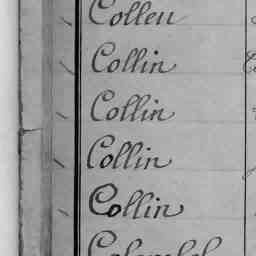 Colleu
Collin
Collin
Collin
Collin